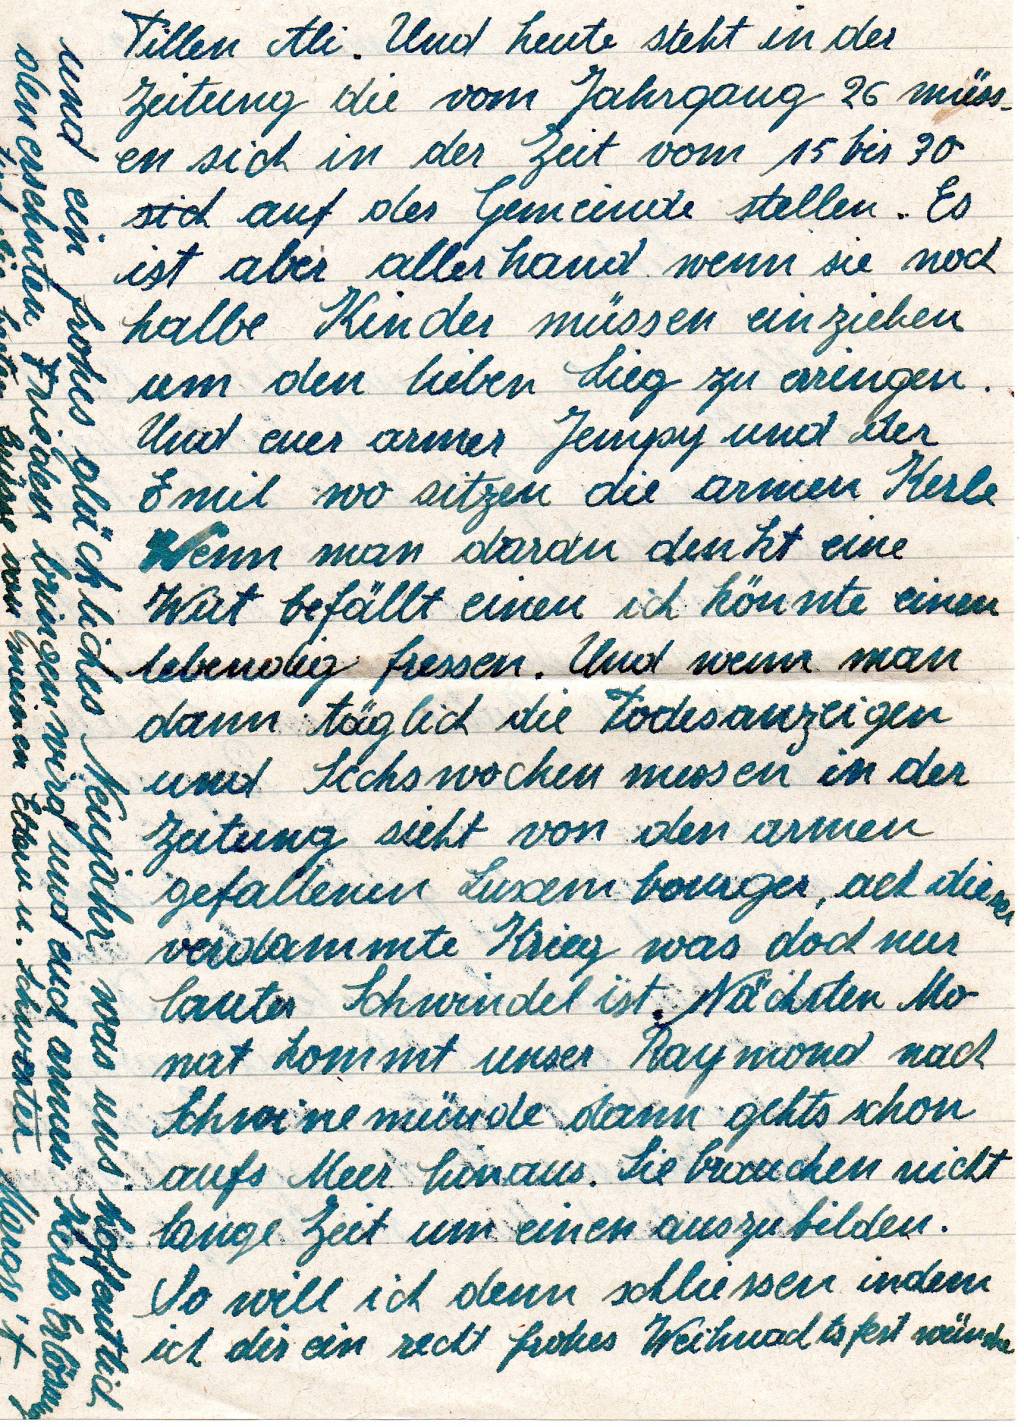 Tillen Ali. Und heute steht in der
Zeitung die vom Jahrgang 26 müss-
en sich in der Zeit vom 15 bis 30
sich auf der Gemeinde stellen. Es
ist aber allerhand wenn sie noch
halbe Kinder müssen einziehen
um den lieben Sieg zu erringen.
Und euer armer Jempy und der
Emil wo sitzen die armen Kerle
Wenn man daran denkt eine
Wut befällt einen ich könnte einen
lebendig fressen. Und wenn man
dann täglich die Todesanzeigen
und Sechswochen messen in der
Zeitung sieht von den armen
gefallenen Luxembourger, ach dieser
verdammte Krieg was doch nur
lauter Schwindel ist. Nächsten Mo-
nat kommt unser Raymond nach
Schwinemünde dann gehts schon
aufs Meer hinaus. Sie brauchen nicht
lange Zeit um einen auszubilden.
So will ich denn schliessen indem
ich dir ein recht frohes Weihnachtsfest wünsche
und ein frohes glückliches Neujahr was uns hoffentlich
den ersehnten Frieden bringen wird und auch armen Kerls Erlösung
Grüsse von meinen Eltern u. Schwester